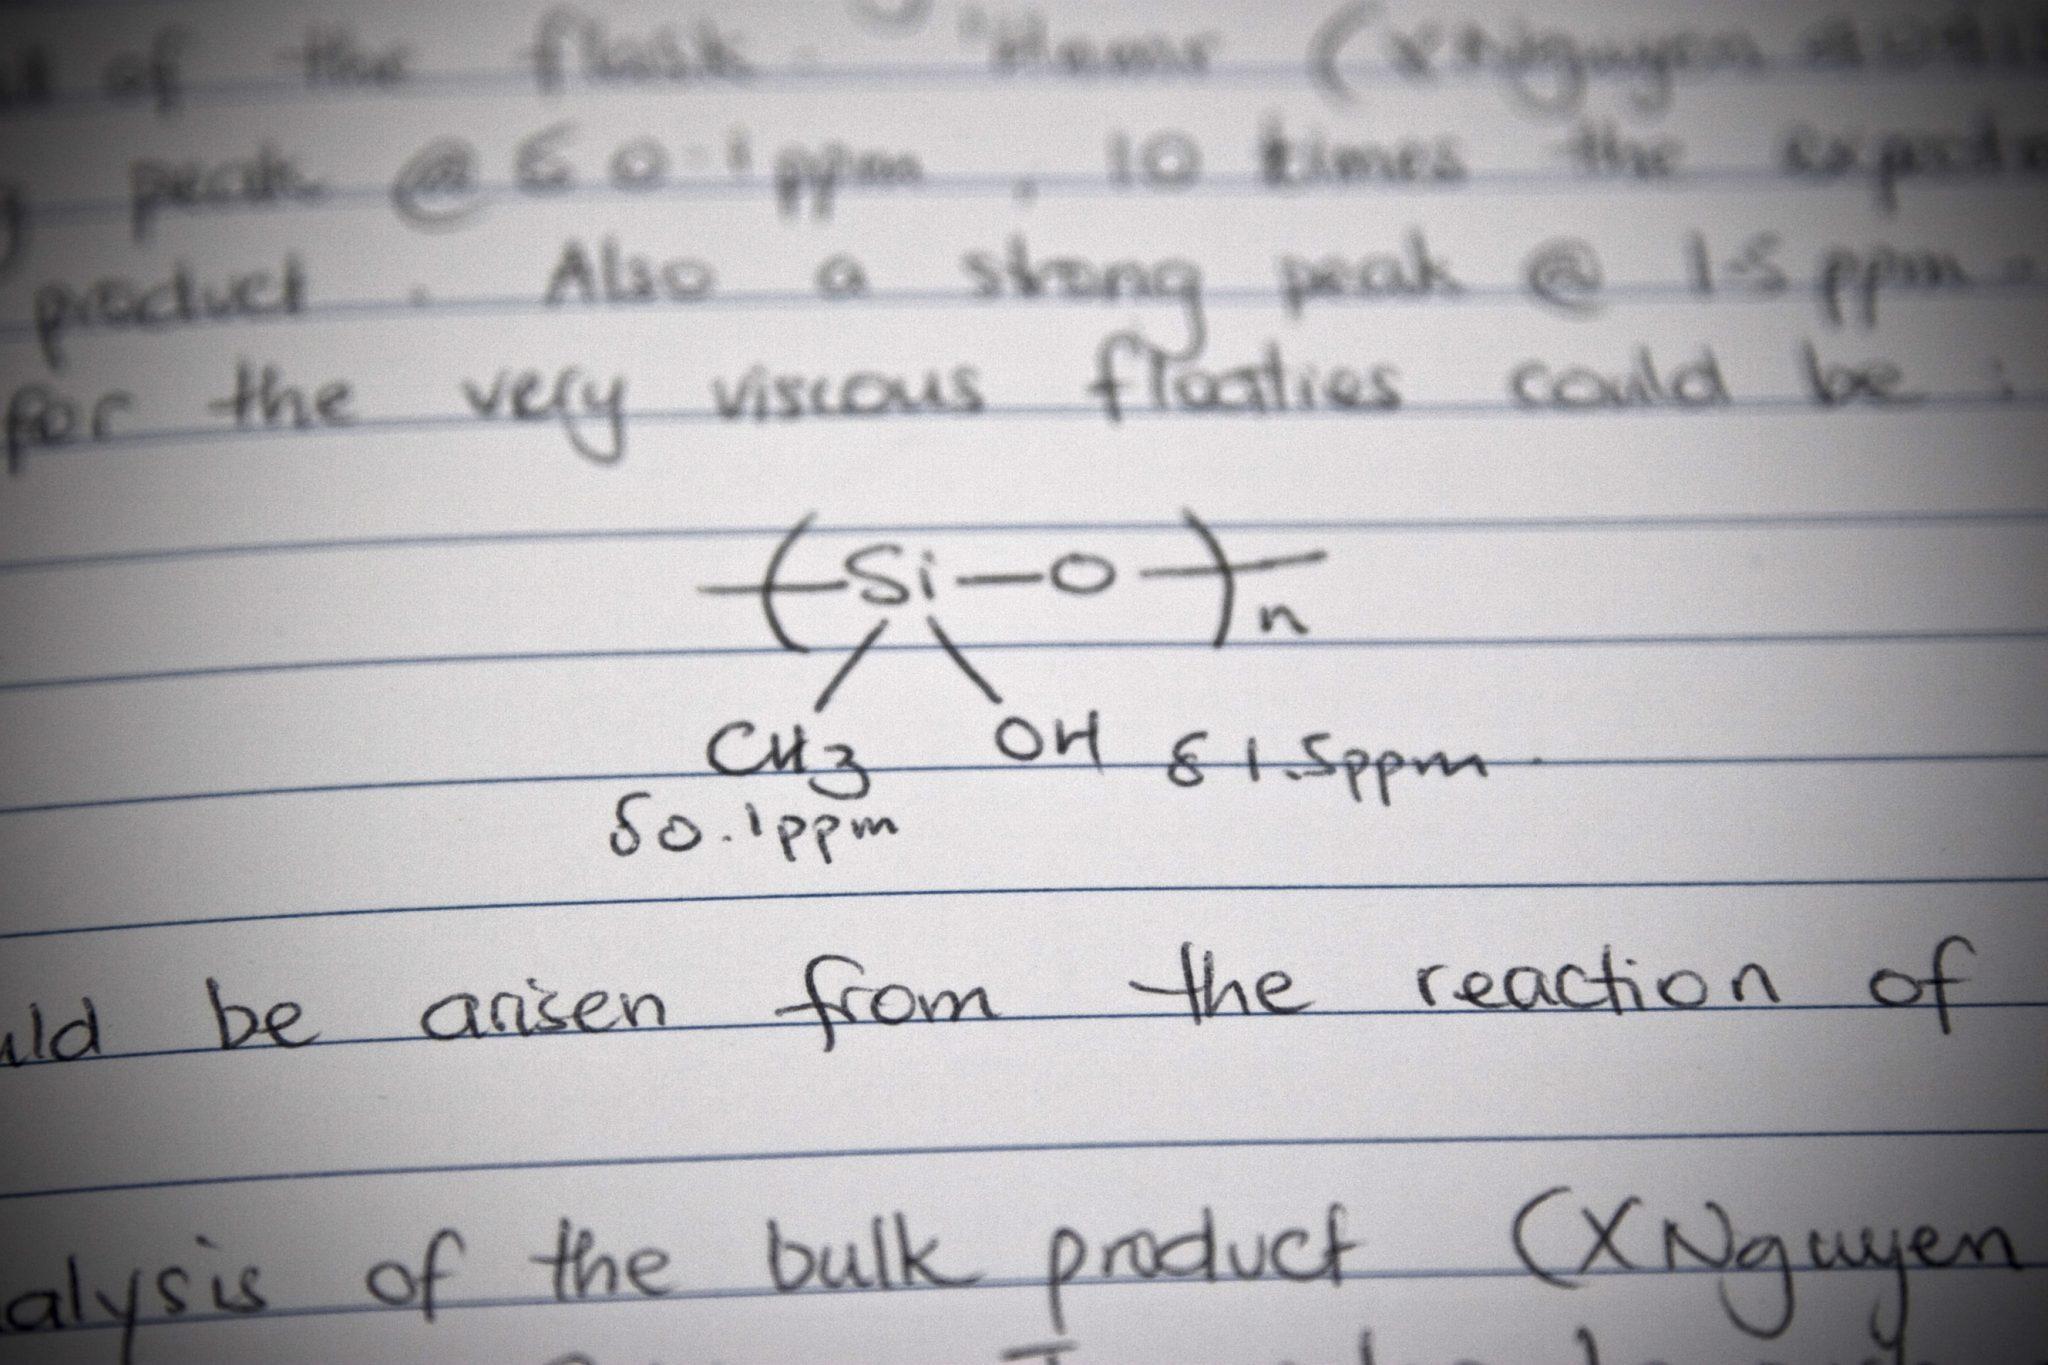 of the flask. "Hnmr (XNguyen
peak @ δ 0.1ppm, 10 times the
product. Also a strong peak @ 1.5 ppm.
for the very viscous floaties could be :
(Si-O)n
CH3 OH δ 1.5ppm.
δ 0.1ppm
uld be arisen from the reaction of
alysis of the bulk product (XNguyen